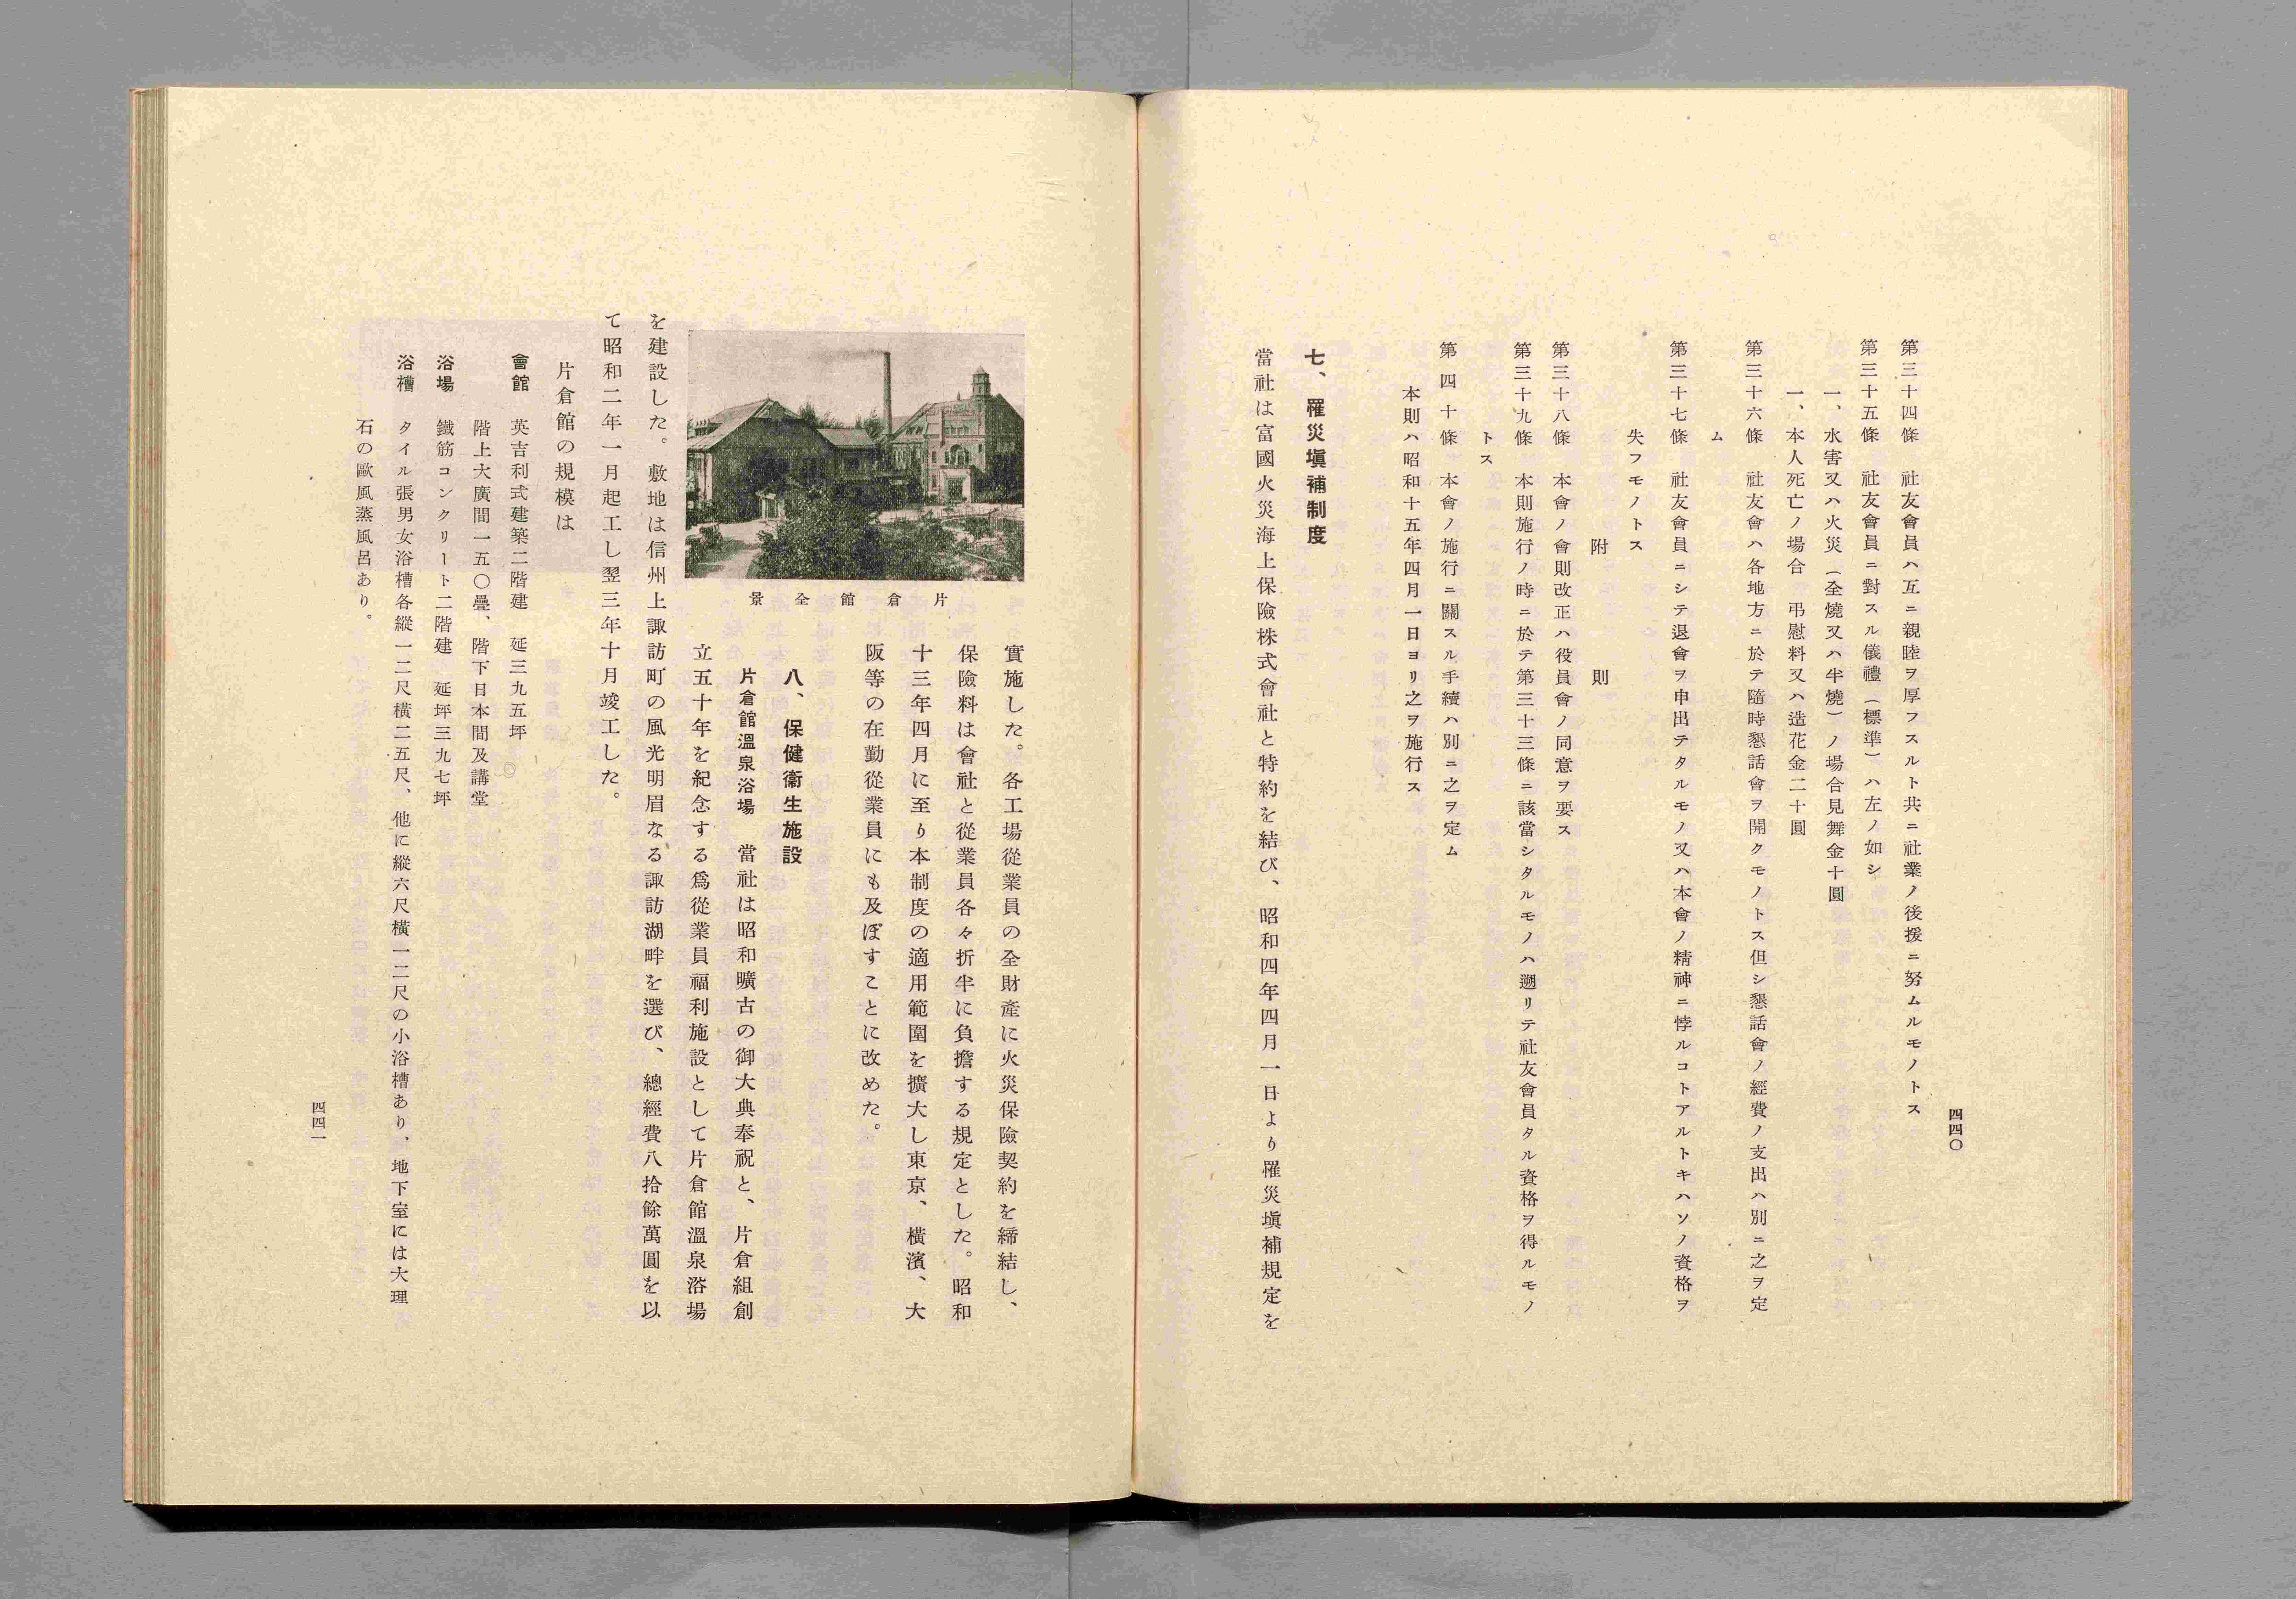 四四〇
第三十四條　社友會員ハ互ニ親睦ヲ厚フスルト共ニ社業ノ後援ニ努ムルモノトス
第三十五條　社友會員ニ對スル儀禮（標準）ハ左ノ如シ
一、水害又ハ火災（全燒又ハ半燒）ノ場合見舞金十圓
一、本人死亡ノ場合　弔慰料又ハ造花金二十圓
第三十六條　社友會ハ各地方ニ於テ隨時懇話會ヲ開クモノトス但シ懇話會ノ經費ノ支出ハ別ニ之ヲ定
ム
第三十七條　社友會員ニシテ退會ヲ申出テタルモノ又ハ本會ノ精神ニ悖ルコトアルトキハソノ資格ヲ
失フモノトス
附　則
第三十八條　本會ノ會則改正ハ役員會ノ同意ヲ要ス
第三十九條　本則施行ノ時ニ於テ第三十三條ニ該當シタルモノハ遡リテ社友會員タル資格ヲ得ルモノ
トス
第四十條　本會ノ施行ニ關スル手續ハ別ニ之ヲ定ム
本則ハ昭和十五年四月一日ヨリ之ヲ施行ス
七、罹災塡補制度
當社は富國火災海上保險株式會社と特約を結び、昭和四年四月一日より罹災塡補規定を
實施した。各工場從業員の全財產に火災保險契約を締結し、
保險料は會社と從業員各々折半に負擔する規定とした。昭和
十三年四月に至り本制度の適用範圍を擴大し東京、橫濱、大
阪等の在勤從業員にも及ぼすことに改めた。
片倉館全景
八、保健衞生施設
片倉館溫泉浴場　當社は昭和曠古の御大典奉祝と、片倉組創
立五十年を紀念する爲從業員福利施設として片倉館溫泉浴場
を建設した。敷地は信州上諏訪町の風光明眉なる諏訪湖畔を選び、總經費八拾餘萬圓を以
て昭和二年一月起工し翌三年十月竣工した。
片倉館の規模は
會館　英吉利式建築二階建　延三九五坪
階上大廣間一五〇疊、階下日本間及講堂
浴場　鐵筋コンクリート二階建　延坪三九七坪
浴槽　タイル張男女浴槽各縱一二尺橫二五尺、他に縱六尺橫一二尺の小浴槽あり、地下室には大理
石の歐風蒸風呂あり。
四四一